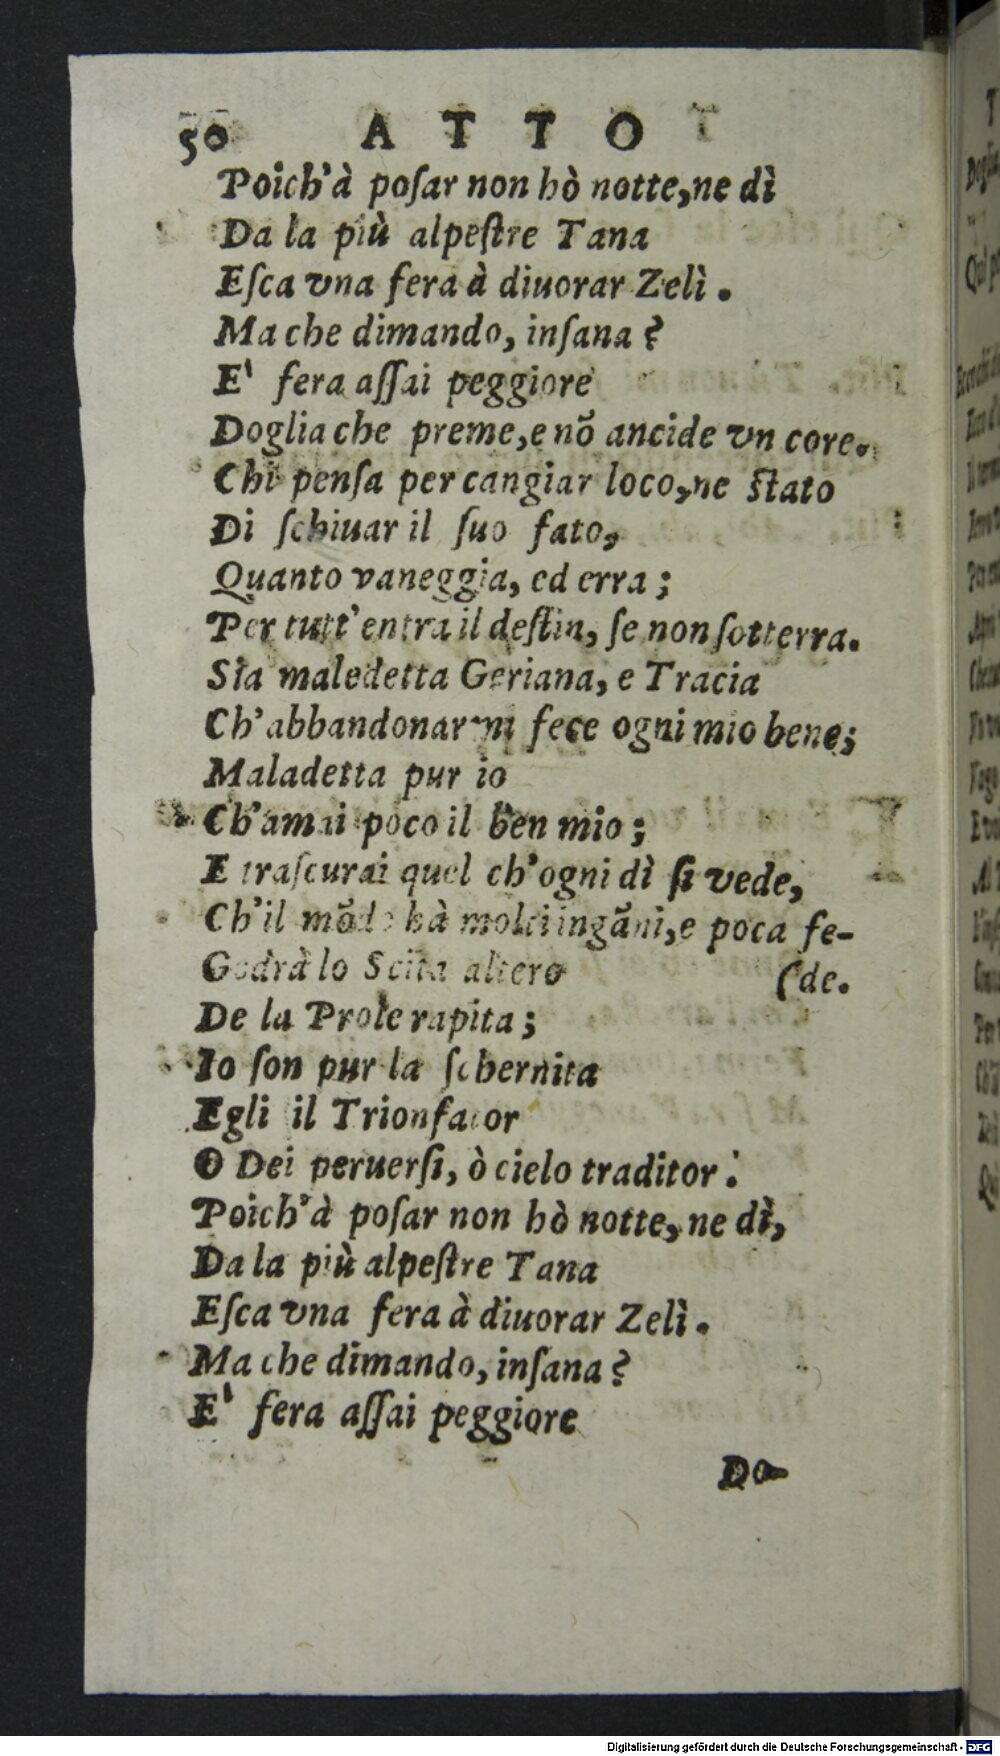 50 ATTO
Poich'à poſar non hò notte,ne dì
Da la più alpeſtre Tana
Eſca vna fera à diuorar Zelì.
Ma che dimando, inſana?
E' fera aſſai peggiore
Doglia che preme,e nõ ancide vn core.
Chi penſa per cangiar loco,ne ſtato
Di ſchiuar il ſuo fato,
Quanto vaneggia, ed erra;
Per tutt'entra il deſtin, ſe non ſotterra.
Sia maledetta Geriana, e Tracia
Ch'abbandonarmi fece ogni mio bene;
Maladetta pur io
Ch'amai poco il ben mio;
E traſcurai quel ch'ogni dì ſi vede,
Ch'il mõdo hà molti ingãni,e poca fe-
Godrà lo Scita altero (de.
De la Prole rapita;
Io ſon pur la ſchernita
Egli il Trionfator
O Dei peruerſi, ò cielo traditor.
Poich'à poſar non hò notte, ne dì,
Da la più alpeſtre Tana
Eſca vna fera à diuorar Zelì.
Ma che dimando, inſana?
E' fera aſſai peggiore
Do-
Digitalisierung gefördert durch die Deutsche Forschungsgemeinschaft - DFG